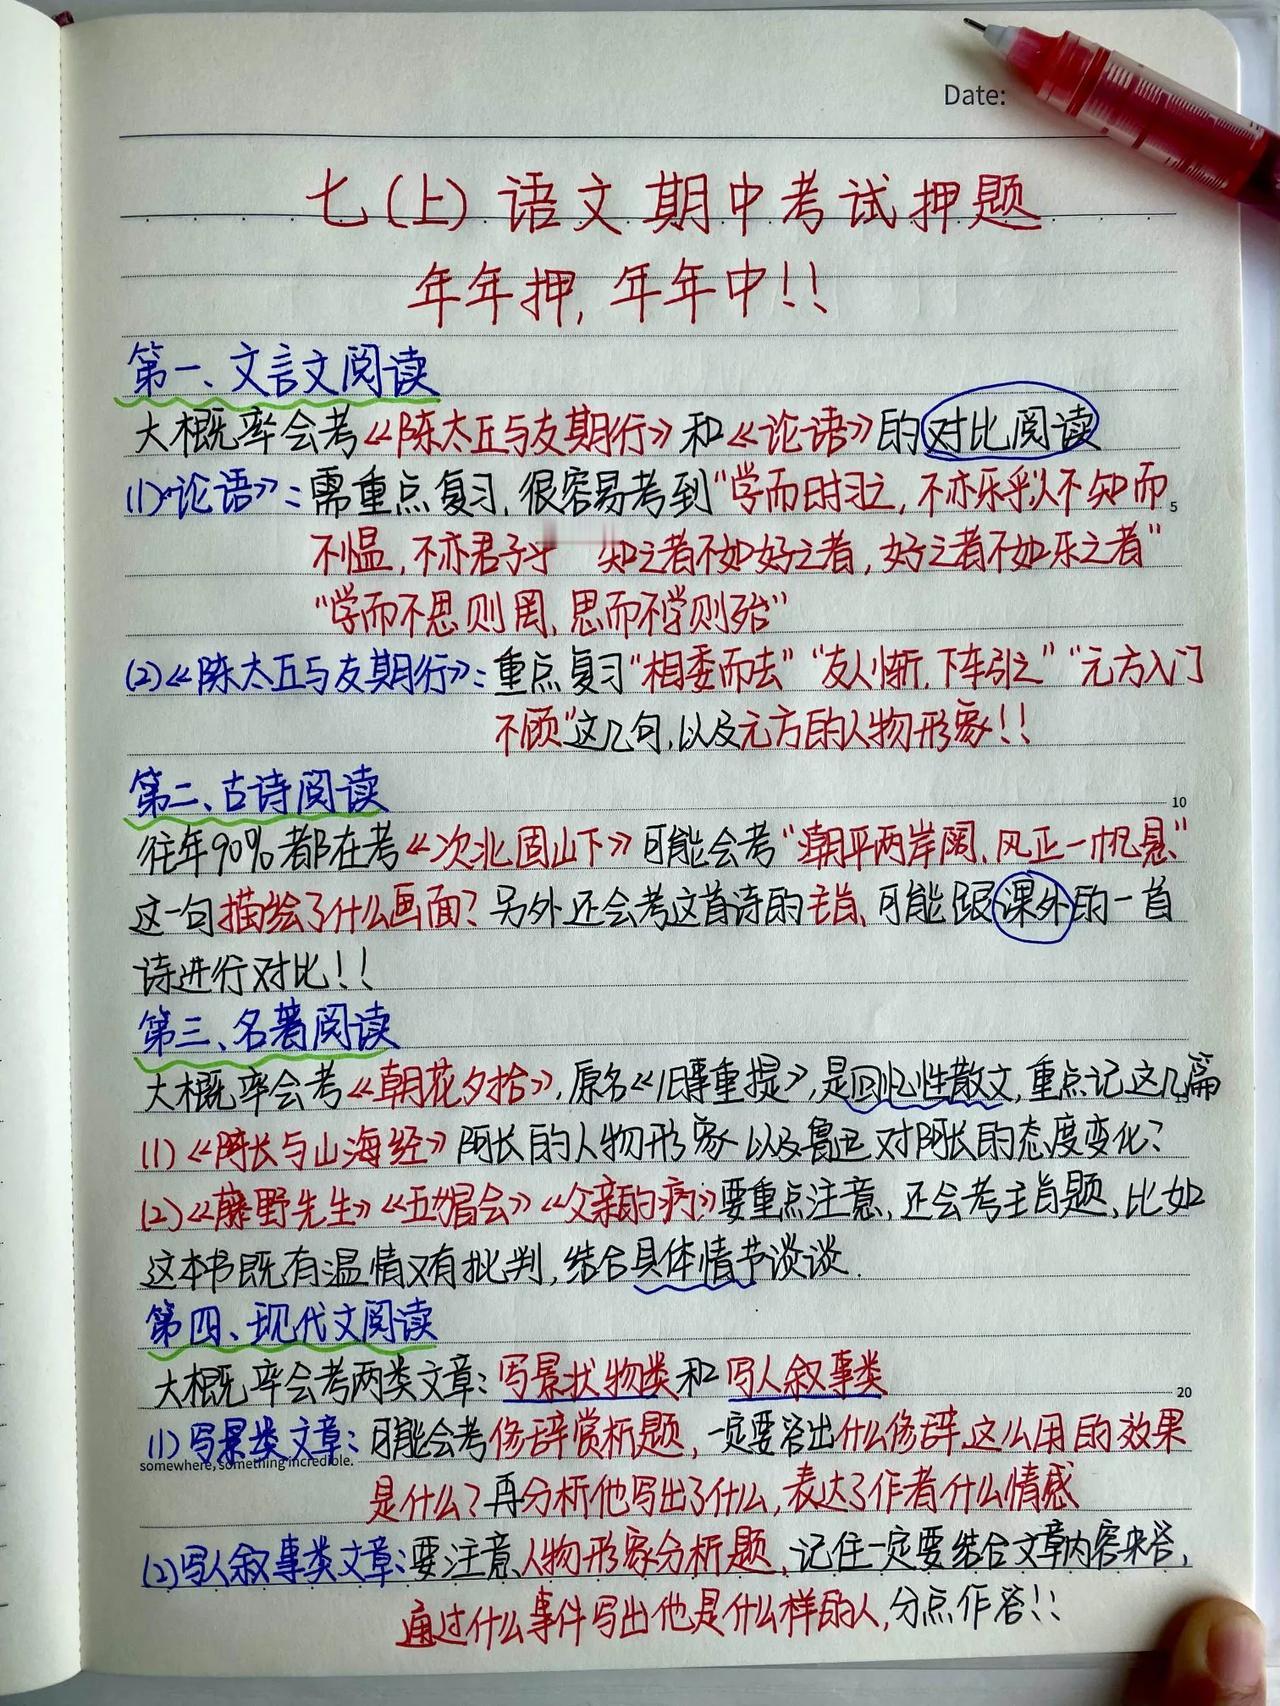 Date:
七(上)语文期中考试押题
年年押,年年中!!
第一、文言文阅读
大概率会考《陈太丘与友期行》和《论语》的对比阅读
(1)《论语》:需重点复习,很容易考到“学而时习之,不亦乐乎”“人不知而
5
不愠,不亦君子乎 知之者不如好之者,好之者不如乐之者”
“学而不思则罔,思而不学则殆”
(2)《陈太丘与友期行》:重点复习“相委而去”“友人惭,下车引之”“元方入门
不顾”这几句,以及元方的人物形象!!
第二、古诗阅读
10
往年90%都在考《次北固山下》可能会考“潮平两岸阔、风正一帆悬”
这一句描绘了什么画面?另外还会考这首诗的主旨、可能跟课外的一首
诗进行对比!!
第三、名著阅读
大概率会考《朝花夕拾》,原名《旧事重提》,是回忆性散文,重点记这几篇
(1)《阿长与山海经》阿长的人物形象以及鲁迅对阿长的态度变化?
(2)《藤野先生》《五猖会》《父亲的病》要重点注意,还会考主旨题,比如
这本书既有温情又有批判,结合具体情节谈谈.
第四、现代文阅读
大概率会考两类文章:写景状物类和写人叙事类
20
(1)写景类文章:可能会考修辞赏析题,一定要答出什么修辞,这么用的效果
somewhere, something incredible.
是什么?再分析他写出了什么,表达了作者什么情感
(2)写人叙事类文章:要注意人物形象分析题,记住一定要结合文章内容来答,
通过什么事件写出他是什么样的人,分点作答!!